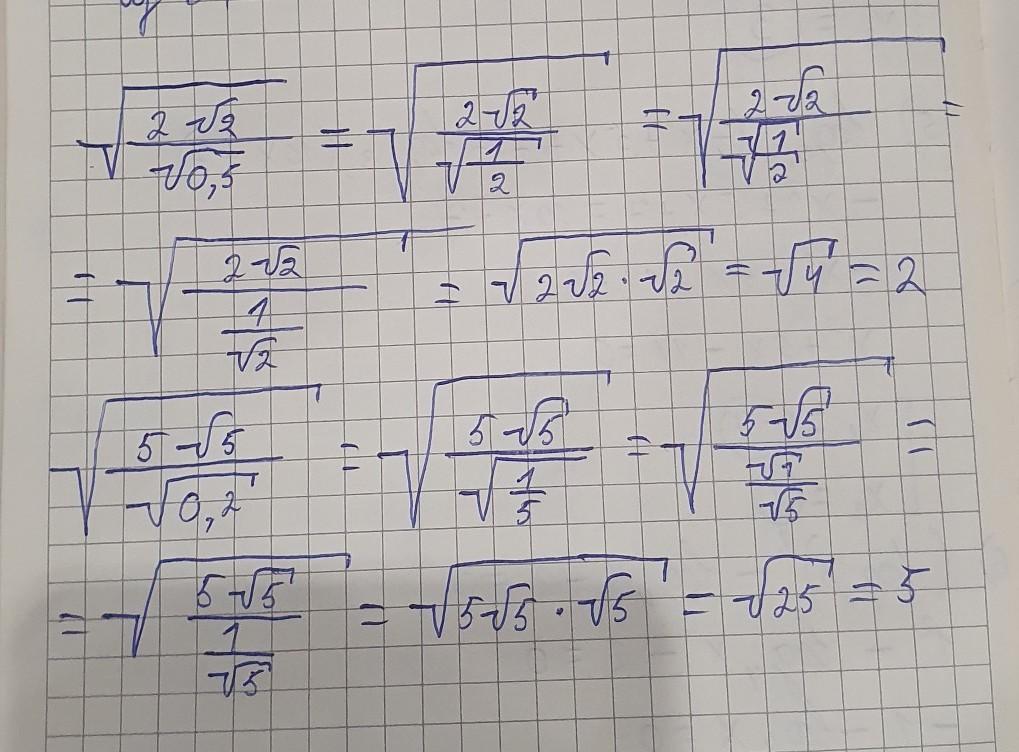 √(2√2/√0,5) = √(2√2/√(1/2)) = √(2√2/(√1/√2)) =
= √(2√2/(1/√2)) = √(2√2·√2) = √4 = 2
√(5√5/√0,2) = √(5√5/√(1/5)) = √(5√5/(√1/√5)) =
= √(5√5/(1/√5)) = √(5√5·√5) = √25 = 5